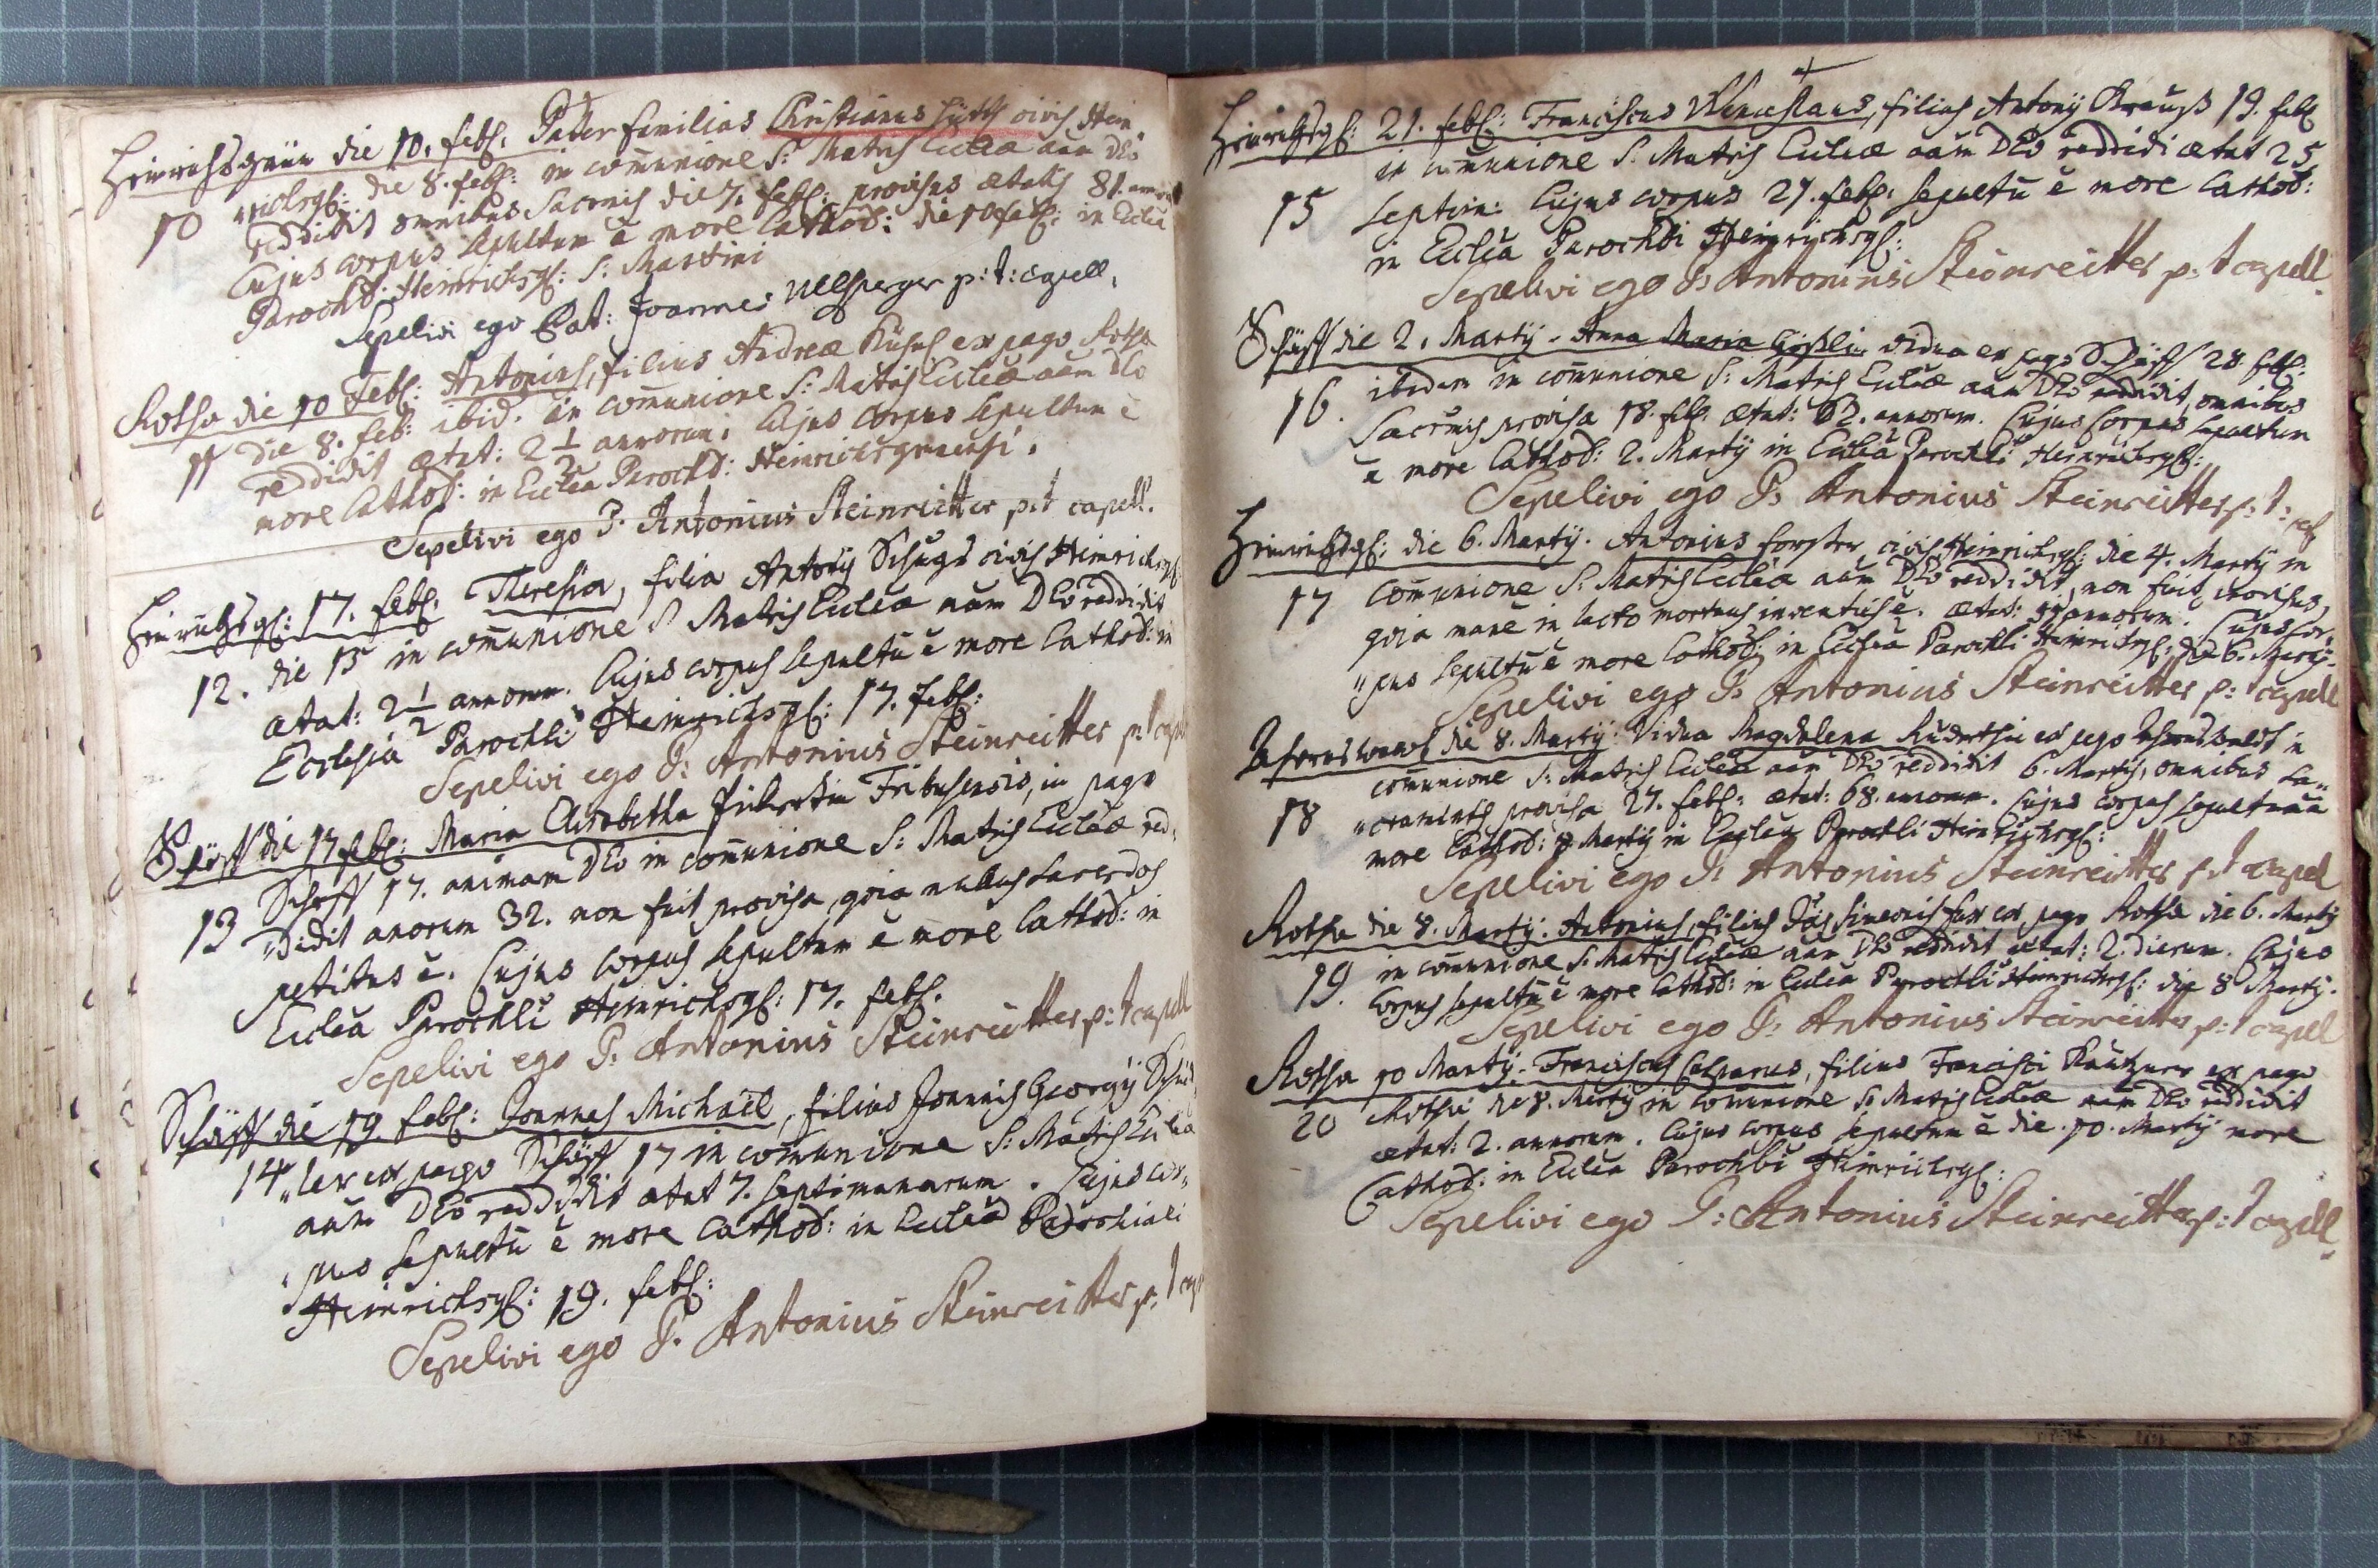 Heinrichsgrün die 10. febr: Pater familias Christianus civis Hein„
10 „richsgr: die 8. febr: in com̄unione S: Matris Eccleæ aām Deo
reddidit omnibus Sacr̄mis die 7. febr: provisus ætatis 81. annor
Cujus corpus sepultum ē more Cathol: die 10 febr: in Ecclea
Parochli Heinrichsgr: S: Martini
Sepelivi ego Pat: Joannes p: t: capell.
Rotha die 10 Febr: Antonius, filius Andreæ ex pago Rotha
11 die 8. feb: ibid. in com̄unione S: Matris Eccleæ aām Deo
reddidit ætat: 2 1/2 annorum. Cujus Corpus Sepultum ē
more Cathol: in Ecclea Parochli: Heinrichsgrünensi.
Sepelivi ego P. Antonius Steinreitter p: t capell.
Heinrichsgr: 17. febr: Theresia, filia Antonÿ civis Heinrichsgr:
12. die 15 in com̄unione S Matris Eccleæ aām Deo reddidit
ætat: 2 1/2 annorum. Cujus corpus sepultū ē more Cathol: in
Ecclesia Parochli Heinrichsgr: 17. febr:
Sepelivi ego P: Antonius Steinreitter p: t cap
Schöff die 17 febr: Maria Elisabetha in pago
13 Schöff 17. animam Deo in com̄unione S: Matris Eccleæ red„
„didit anorum 32. non fuit provisa, quia nullus Sacerdos
petitus ē. Cujus corpus sepultum ē more Cathol: in
Ecclea Parochli Heinrichsgr: 17. febr.
Sepelivi ego P: Antonius Steinreitter p: t capell
Schöff die 19 febr: Joannes Michaël, filius Joannis Georgÿ
14 „ler ex pago Schöff 17 in com̄unione S: Matris Ecclea
aām Deo reddidit ætat 7. septimanarum. Cujus cor„
„pus sepultū ē more Cathol: in Ecclea Parochiali
Heinrichsgr: 19. febr:
Sepelivi ego P. Antonius Steinreitter p: t cap
Heinrichsgr: 21. febr: Franciscus Wenceslaus, filius Antonÿ Krauß 19. febr
in com̄unione S. Matris Eccleæ aām Deo reddidi ætat 25
15 septim: Cujus corpus 21. febr: sepultū ē more Cathol:
in Ecclea Parochli Heinrichsgr:
Sepelivi ego P: Antonius Steinreitter p: t capell.
Schöff die 2. Martÿ. Anna Maria vidua ex pago Schöff 28. febr:
16. ibidem in com̄unione S: Matris Eccleæ aām Deo reddidit, omnibus
Sacr̄mis provisa 18. febr. ætat: 62. annorum. Cujus Corpus sepultum
ē more Cathol: 2. Martÿ in Ecclea Parochli Heinrichsgr:
Sepelivi ego P: Antonius Steinreitter p: t: cap
Heinrichsgr: die 6. Martÿ. Antonius Forster civis Heinrichsgr: die 4. Martÿ in
17 com̄unione S. Matris Eccleæ aām Deo reddidit, non fuit provisus,
quia mane in lecto mortuus inventus ē. ætat: annorum. Cujus cor„
„pus sepultū ē more Cathol: in Ecclea Parochli Heinrichsgr: die 6. Martÿ.
Sepelivi ego P: Antonius Steinreitter p: t capell
die 8. Martÿ: Vidua Magdalena ex pago in
com̄unione S: Matris Eccleæ aām Deo reddidit 6. Martÿ, omnibus Sa„
18 „cramentis provisa 27. febr: ætat: 68. annorum. Cujus corpus sepultum ē
more Cathol: 8 Martÿ in Ecclea Parochli Heinrichsgr:
Sepelivi ego P: Antonius Steinreitter p: t capel
Rotha die 8. Martÿ. Antonius, filius Simeonis ex pago Rotha die 6. Martÿ
19. in com̄unione S. Matris Eccleæ aām Deo reddidit ætat: 2. dierum. Cujus
Corpus sepultū ē more Cathol: in Ecclea Parochli Heinrichsgr: die 8 Martÿ.
Sepelivi ego P: Antonius Steinreitter p: t capel
Rotha 10 Martÿ. Franciscus Casparus, filius Francisci ex pago
20 Rotha die 8. Martÿ in com̄unione S. Matris Eccleæ aām Deo reddidit
ætat: 2. annorum. Cujus corpus sepultum ē die. 10. Martÿ more
Cathol: in Ecclea Parochli Heinrichsgr:
Sepelivi ego P: Antonius Steinreitter p: t capell.